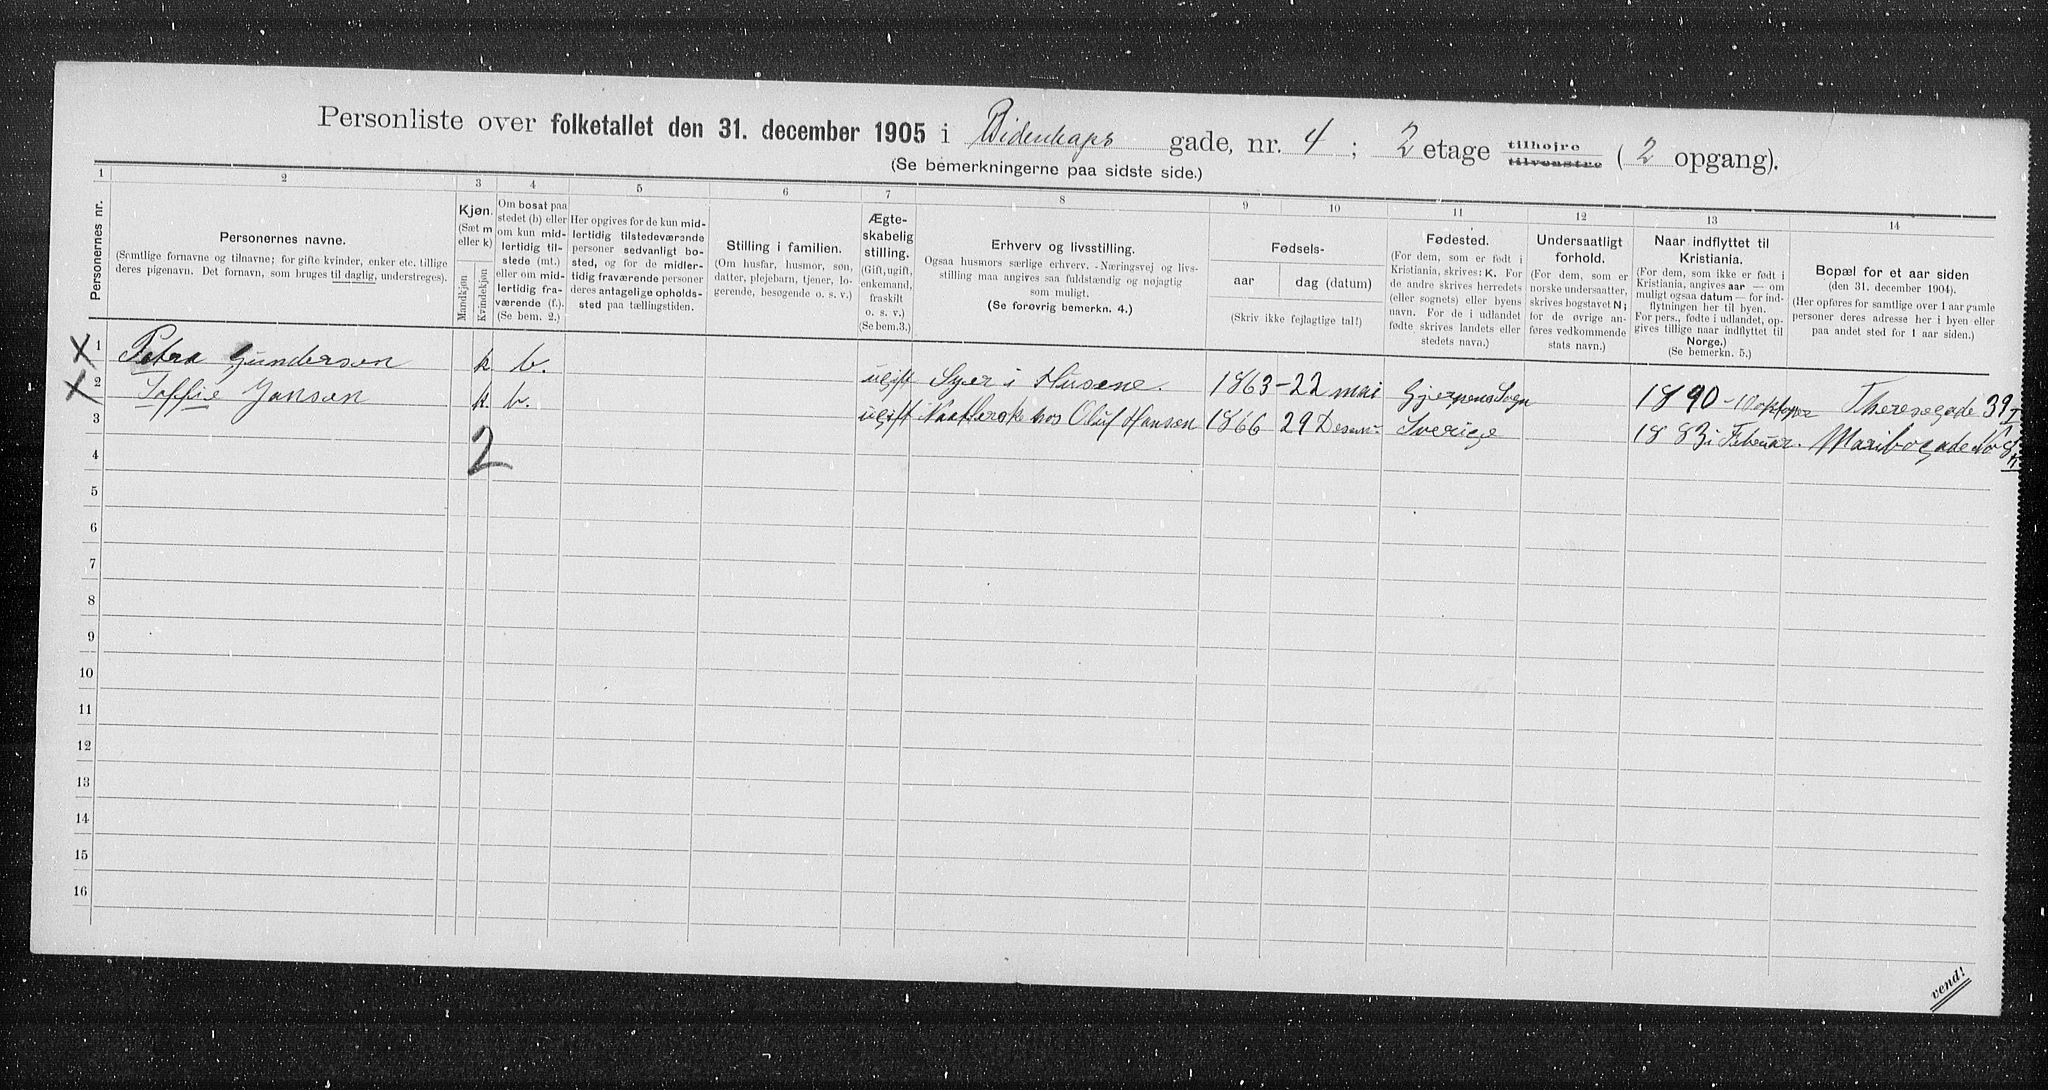 Personliste over folketallet den 31. december 1905 i Bidenkaps gade, nr. 4 ; 2 etage tilhøjre tilvenstre ( 2 opgang).
(Se bemerkningerne paa sidste side.)
1 2 3 4 5 6 7 8 9 10 11 12 13 14
Personernes nr.
Personernes navne.
(Samtlige fornavne og tilnavne; for gifte kvinder, enker etc. tillige
deres pigenavn. Det fornavn, som bruges til daglig, understreges).
Kjøn.
(Sæt m
eller k)
Mandkjøn
Kvindekjøn
Om bosat paa
stedet (b) eller
om kun mid-
lertidig til-
stede (mt.)
eller om mid-
lertidig fra-
værende (f.).
(Se bem. 2.)
Her opgives for de kun mid-
lertidig tilstedeværende
personer sedvanligt bo-
sted, og for de midler-
tidig fraværende personer
deres antagelige opholds-
sted paa tællingstiden.
Stilling i familien.
(Om husfar, husmor, søn,
datter, plejebarn, tjener, lo-
gerende, besøgende o. s. v.)
Ægte-
skabelig
stilling.
(Gift, ugift,
enkemand,
fraskilt
o. s. v.)
(Se bem.3.)
Erhverv og livsstilling.
Ogsaa husmors særlige erhverv. - Næringsvej og livs-
stilling maa angives saa fuldstændig og nøjagtig
som muligt.
(Se forøvrig bemerkn. 4.)
Fødsels-
aar dag (datum)
(Skriv ikke fejlagtige tal!)
Fødested.
(For dem, som er født i
Kristiania, skrives: K. For
de andre skrives herredets
(eller sognets) eller byens
navn. For de i udlandet
fødte skrives landets eller
stedets navn.)
Undersaatligt
forhold.
(For dem, som er
norske undersaatter,
skrives bogstavet N;
for de øvrige an-
føres vedkommende
stats navn.)
Naar indflyttet til
Kristiania.
(For dem, som ikke er født i
Kristiania, angives aar — om
muligt ogsaa datum — for ind-
flytningen her til byen.
For pers., fødte i udlandet, op-
gives tillige naar indflyttet til
Norge.)
(Se bemerkn. 5.)
Bopæl for et aar siden
(den 31. december 1904).
(Her opføres for samtlige over 1 aar gamle
personer deres adresse her i byen eller
paa andet sted for 1 aar siden.)
X 1 Petra Gundersen k. b. ugift Syer i Husene. 1863 - 22 mai Gjerpens Sogn 1890 - oktober Theresegade 39 I
X 2 Soffie Jansen k. b. ugift hos Oluf Hansen 1866 29 Desem Sverige 1883 i Februar. Maribogade No 8
3
2
4
5
6
7
8
9
10
11
12
13
14
15
16
vend!